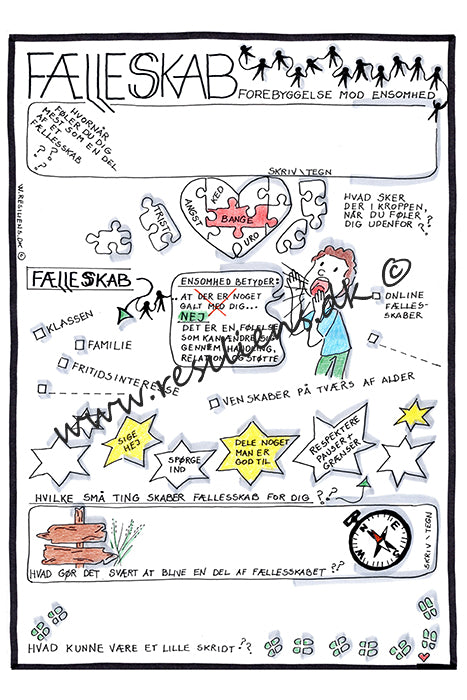 FÆLLESSKAB
FOREBYGGELSE MOD ENSOMHED
HVORNÅR
FØLER DU DIG
MEST SOM EN DEL
AF ET
FÆLLESSKAB
???
SKRIV \ TEGN
W.RESILIENS.DK ©
TRIST
ANGST
KED
BANGE
URO
HVAD SKER
DER I KROPPEN,
NÅR DU FØLER
DIG UDENFOR ??
FÆLLESSKAB
ENSOMHED BETYDER:
AT DER ER NOGET
GALT MED DIG...
NEJ
DET ER EN FØLELSE
SOM KAN ÆNDRE SIG
GENNEM HANDLING,
RELATION OG STØTTE
KLASSEN
FAMILIE
FRITIDSINTERESSE
VENSKABER PÅ TVÆRS AF ALDER
ONLINE
FÆLLES-
SKABER
www.resiliens.dk ©
SIGE
HEJ
SPØRGE
IND
DELE NOGET
MAN ER
GOD TIL
RESPEKTERE
PAUSER &
GRÆNSER
HVILKE SMÅ TING SKABER FÆLLESSKAB FOR DIG ??
N
E
S
W
SKRIV \ TEGN
HVAD GØR DET SVÆRT AT BLIVE EN DEL AF FÆLLESSKABET ??
HVAD KUNNE VÆRE ET LILLE SKRIDT ??